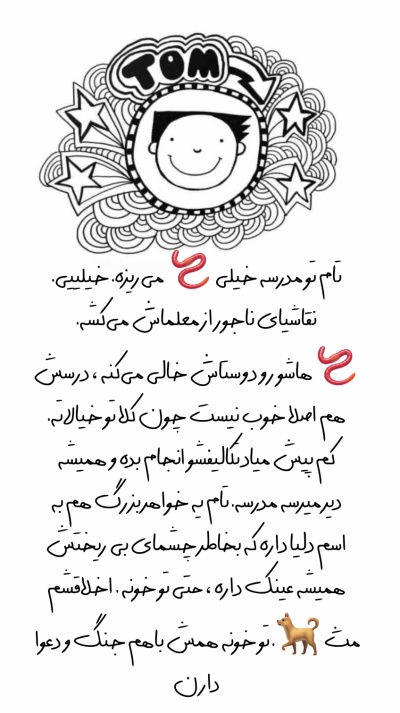 TOM
تام تو مدرسه خیلی 🪱 می ریزه. خیلییی.
نقاشیای ناجور از معلماش می‌کشه.
🪱 هاشو رو دوستاش خالی می‌کنه ، درسش
هم اصلا خوب نیست چون کلا تو خیالاته.
کم پیش میاد تکالیفشو انجام بده و همیشه
دیر میرسه مدرسه. تام یه خواهر بزرگ هم به
اسم دلیا داره که بخاطر چشمای بی ریختش
همیشه عینک داره ، حتی تو خونه . اخلاقشم
مث 🐕 . تو خونه همش باهم جنگ و دعوا
دارن